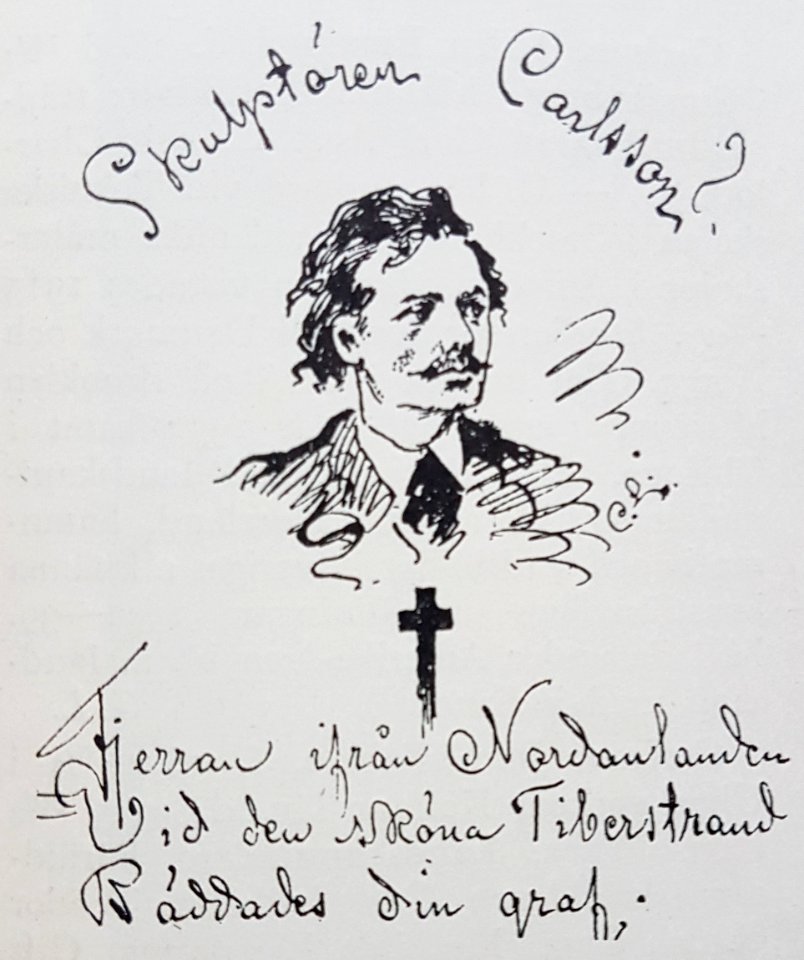 Skulptóren Carlsson?
C.L.
Fjerran ifrån Nordanlanden
Vid den skóna Tiberstrand
Báddades din graf,.